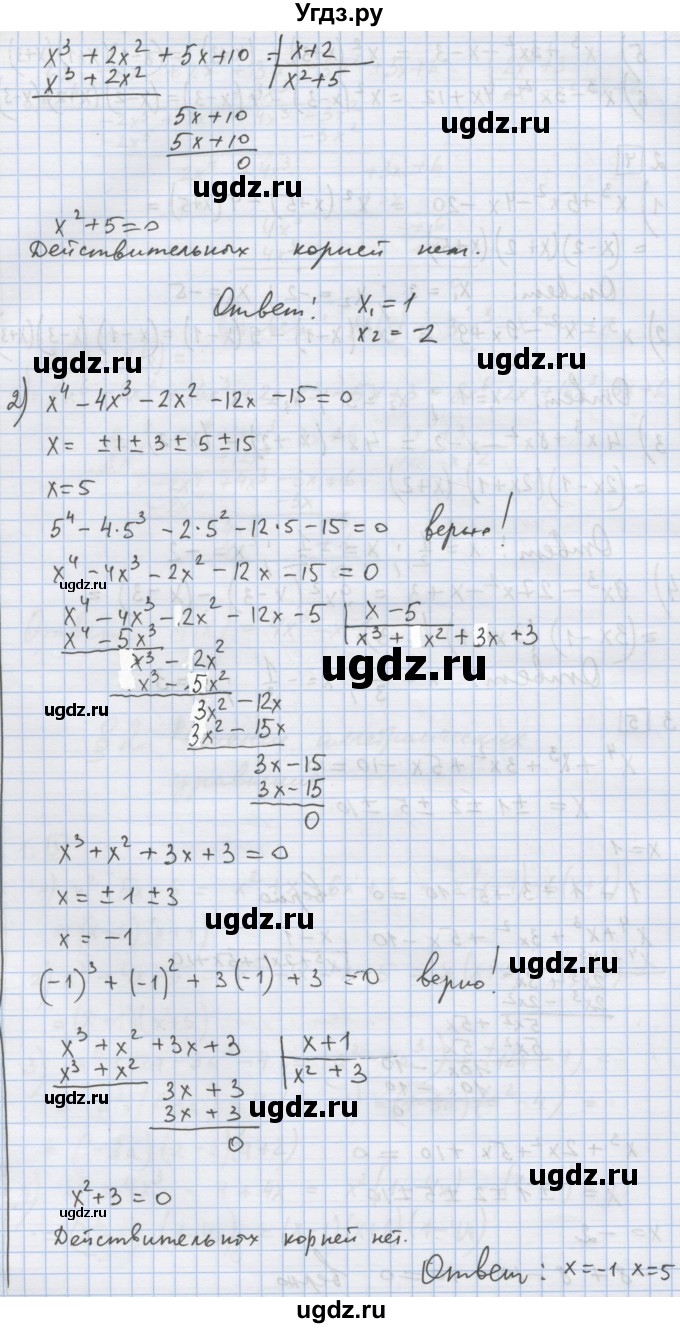 Угдз.ру
x³ + 2x² + 5x + 10 = | x + 2
x³ + 2x² x² + 5
5x + 10
ugdz.ru
5x + 10
0
ugdz.ru
x² + 5 = 0
Действительных корней нет.
Ответ! x₁ = 1
x₂ = -2
ugdz.ru ugdz.ru
2) x⁴ - 4x³ - 2x² - 12x - 15 = 0
x = ±1 ± 3 ± 5 ± 15
x = 5
5⁴ - 4·5³ - 2·5² - 12·5 - 15 = 0 верно!
x⁴ - 4x³ - 2x² - 12x - 15 = 0
x⁴ - 4x³ - 2x² - 12x - 5 | x - 5
x⁴ - 5x³ x³ + x² + 3x + 3
x³ - 2x²
ugdz.ru
x³ - 5x²
ugdz.ru
3x² - 12x
3x² - 15x
3x - 15
3x - 15
0
x³ + x² + 3x + 3 = 0
x = ±1 ± 3
ugdz.ru
x = -1
ugdz.ru
(-1)³ + (-1)² + 3(-1) + 3 = 0 верно!
x³ + x² + 3x + 3 | x + 1
x³ + x² x² + 3
ugdz.ru
3x + 3
3x + 3
ugdz.ru
0
x² + 3 = 0
ugdz.ru
Действительных корней нет.
Ответ: x = -1 x = 5
ugdz.ru